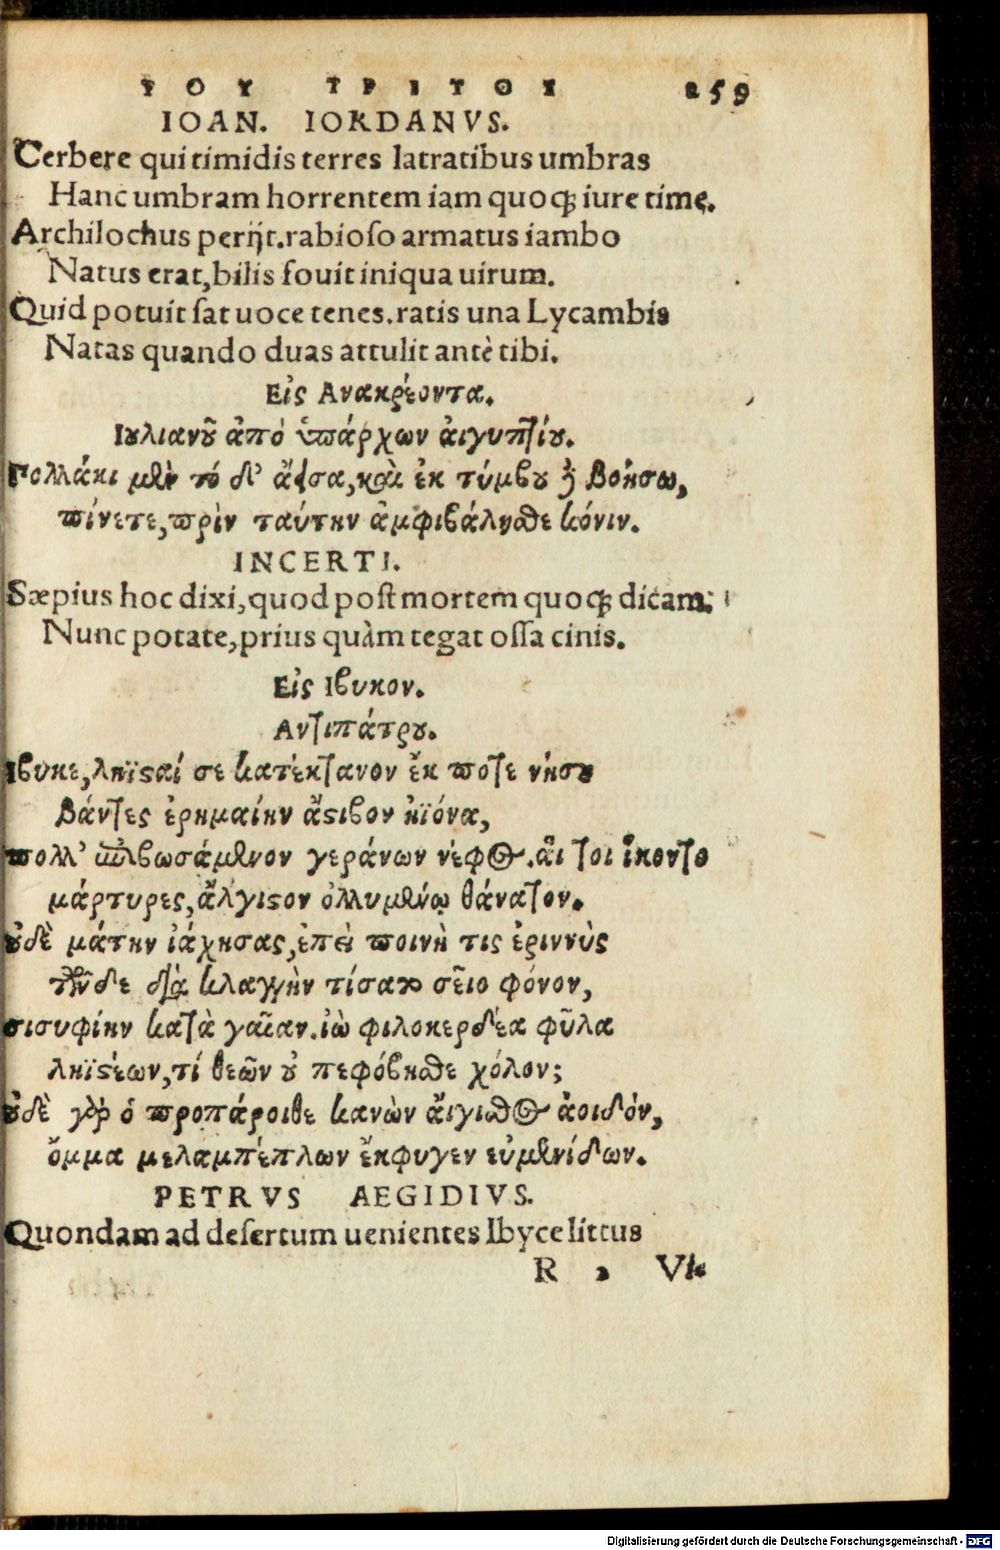 ΤΟΥ ΤΡΙΤΟΥ 259
IOAN. IORDANVS.
Cerbere qui timidis terres latratibus umbras
Hanc umbram horrentem iam quoqꝫ iure time.
Archilochus perijt. rabioso armatus iambo
Natus erat, bilis fouit iniqua uirum.
Quid potuit sat uoce tenes. ratis una Lycambis
Natas quando duas attulit antè tibi.
Εἰς Ανακρέοντα.
Ιουλιανοῦ ἀπὸ ὑπάρχων αἰγυπτίου.
Πολλάκι μὲν τό δ' ἄεισα, καὶ ἐκ τύμβου δὲ βοήσω,
πίνετε, πρὶν ταύτην ἀμφιβάλησθε κόνιν.
INCERTI.
Sæpius hoc dixi, quod post mortem quoqꝫ dicam:
Nunc potate, prius quàm tegat ossa cinis.
Εἰς Ιβυκον.
Αντιπάτρου.
Ιβυκε, ληϊσαί σε κατέκτανον ἔκ ποτε νήσου
βάντες ἐρημαίην ἄστιβον ἠϊόνα,
πολλ' ἐπιβωσάμενον γεράνων νέφος. αἵ τοι ἵκοντο
μάρτυρες, ἄλγιστον ὀλλυμένῳ θάνατον.
οὐδὲ μάτην ἰάχησας, ἐπεὶ ποινὴ τις ἐριννὺς
τῶνδε διὰ κλαγγὴν τίσατο σεῖο φόνον,
σισυφίην κατὰ γαῖαν. ἰὼ φιλοκερδέα φῦλα
ληϊστέων, τί θεῶν οὐ πεφόβησθε χόλον;
οὐδὲ γὰρ ὁ προπάροιθε κανὼν αἴγισθος ἀοιδόν,
ὄμμα μελαμπέπλων ἔκφυγεν εὐμενίδων.
PETRVS AEGIDIVS.
Quondam ad desertum uenientes Ibyce littus
R 2 Vi-
Digitalisierung gefördert durch die Deutsche Forschungsgemeinschaft - DFG